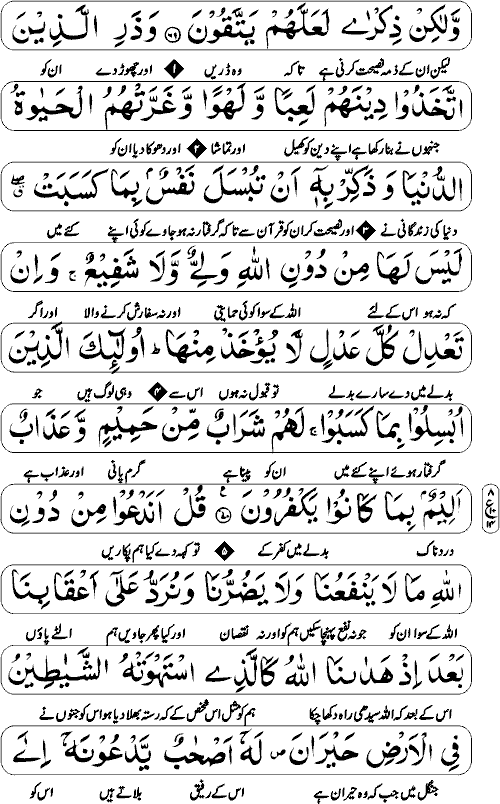 وَّلٰكِنْ ذِكْرٰى لَعَلَّهُمْ يَتَّقُوْنَ ﴿۶۹﴾ وَذَرِ الَّذِيْنَ
لیکن ان کے ذمہ نصیحت کرنی ہے تاکہ وہ ڈریں ۱ اور چھوڑ دے ان کو
اتَّخَذُوْا دِيْنَهُمْ لَعِبًا وَّ لَهْوًا وَّ غَرَّتْهُمُ الْحَيٰوةُ
جنہوں نے بنا رکھا ہے اپنے دین کو کھیل اور تماشا ۲ اور دھوکا دیا ان کو
الدُّنْيَا وَ ذَكِّرْ بِهٖۤ اَنْ تُبْسَلَ نَفْسٌۢ بِمَا كَسَبَتْ
دنیا کی زندگانی نے ۳ اور نصیحت کر ان کو قرآن سے تاکہ گرفتار نہ ہو جاوے کوئی اپنے کئے میں
لَيْسَ لَهَا مِنْ دُوْنِ اللّٰهِ وَلِيٌّ وَّلَا شَفِيْعٌ ۚ وَاِنْ
کہ نہ ہو اس کے لئے اللہ کے سوا کوئی حمایتی اور نہ سفارش کرنے والا اور اگر
تَعْدِلْ كُلَّ عَدْلٍ لَّا يُؤْخَذْ مِنْهَا ؕ اُولٰٓئِكَ الَّذِيْنَ
بدلے میں دے سارے بدلے تو قبول نہ ہوں اس سے ۴ وہی لوگ ہیں جو
اُبْسِلُوْا بِمَا كَسَبُوْا ۚ لَهُمْ شَرَابٌ مِّنْ حَمِيْمٍ وَّ عَذَابٌ
گرفتار ہوئے اپنے کئے میں ان کو پینا ہے گرم پانی اور عذاب ہے
اَلِيْمٌۢ بِمَا كَانُوْا يَكْفُرُوْنَ ﴿۷۰﴾ قُلْ اَنَدْعُوْا مِنْ دُوْنِ
دردناک بدلے میں کفر کے ۵ تو کہہ دے کیا ہم پکاریں
اللّٰهِ مَا لَا يَنْفَعُنَا وَلَا يَضُرُّنَا وَنُرَدُّ عَلٰٓى اَعْقَابِنَا
اللہ کے سوا ان کو جو نہ نفع پہنچا سکیں ہم کو اور نہ نقصان اور کیا پھر جاویں ہم الٹے پاؤں
بَعْدَ اِذْ هَدٰىنَا اللّٰهُ كَالَّذِى اسْتَهْوَتْهُ الشَّيٰطِيْنُ
اس کے بعد کہ اللہ سیدھی راہ دکھا چکا ہم کو مثل اس شخص کے کہ رستہ بھلا دیا ہو اس کو جنوں نے
فِى الْاَرْضِ حَيْرَانَ ۪ لَهٗۤ اَصْحٰبٌ يَّدْعُوْنَهٗۤ اِلَى
جنگل میں جب کہ وہ حیران ہے اس کے رفیق بلاتے ہیں اس کو